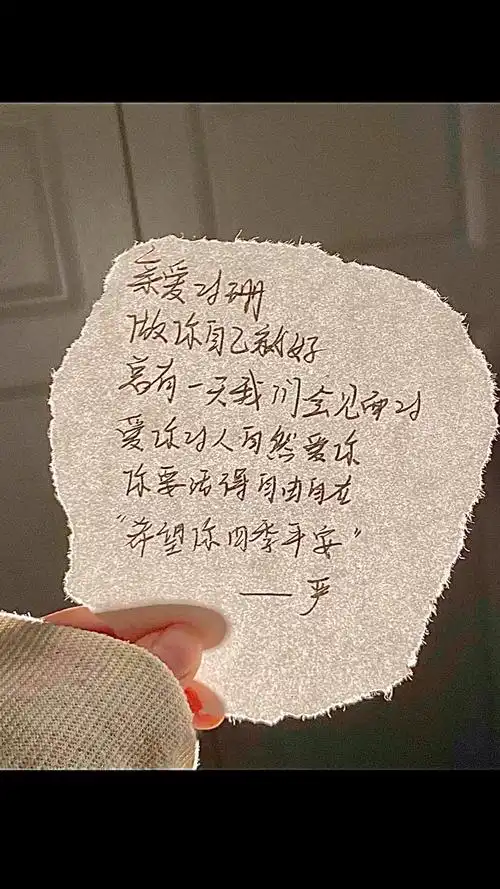 亲爱的珊
做你自己就好
总有一天我们会见面的
爱你的人自然爱你
你要活得自由自在
“希望你四季平安”
——严